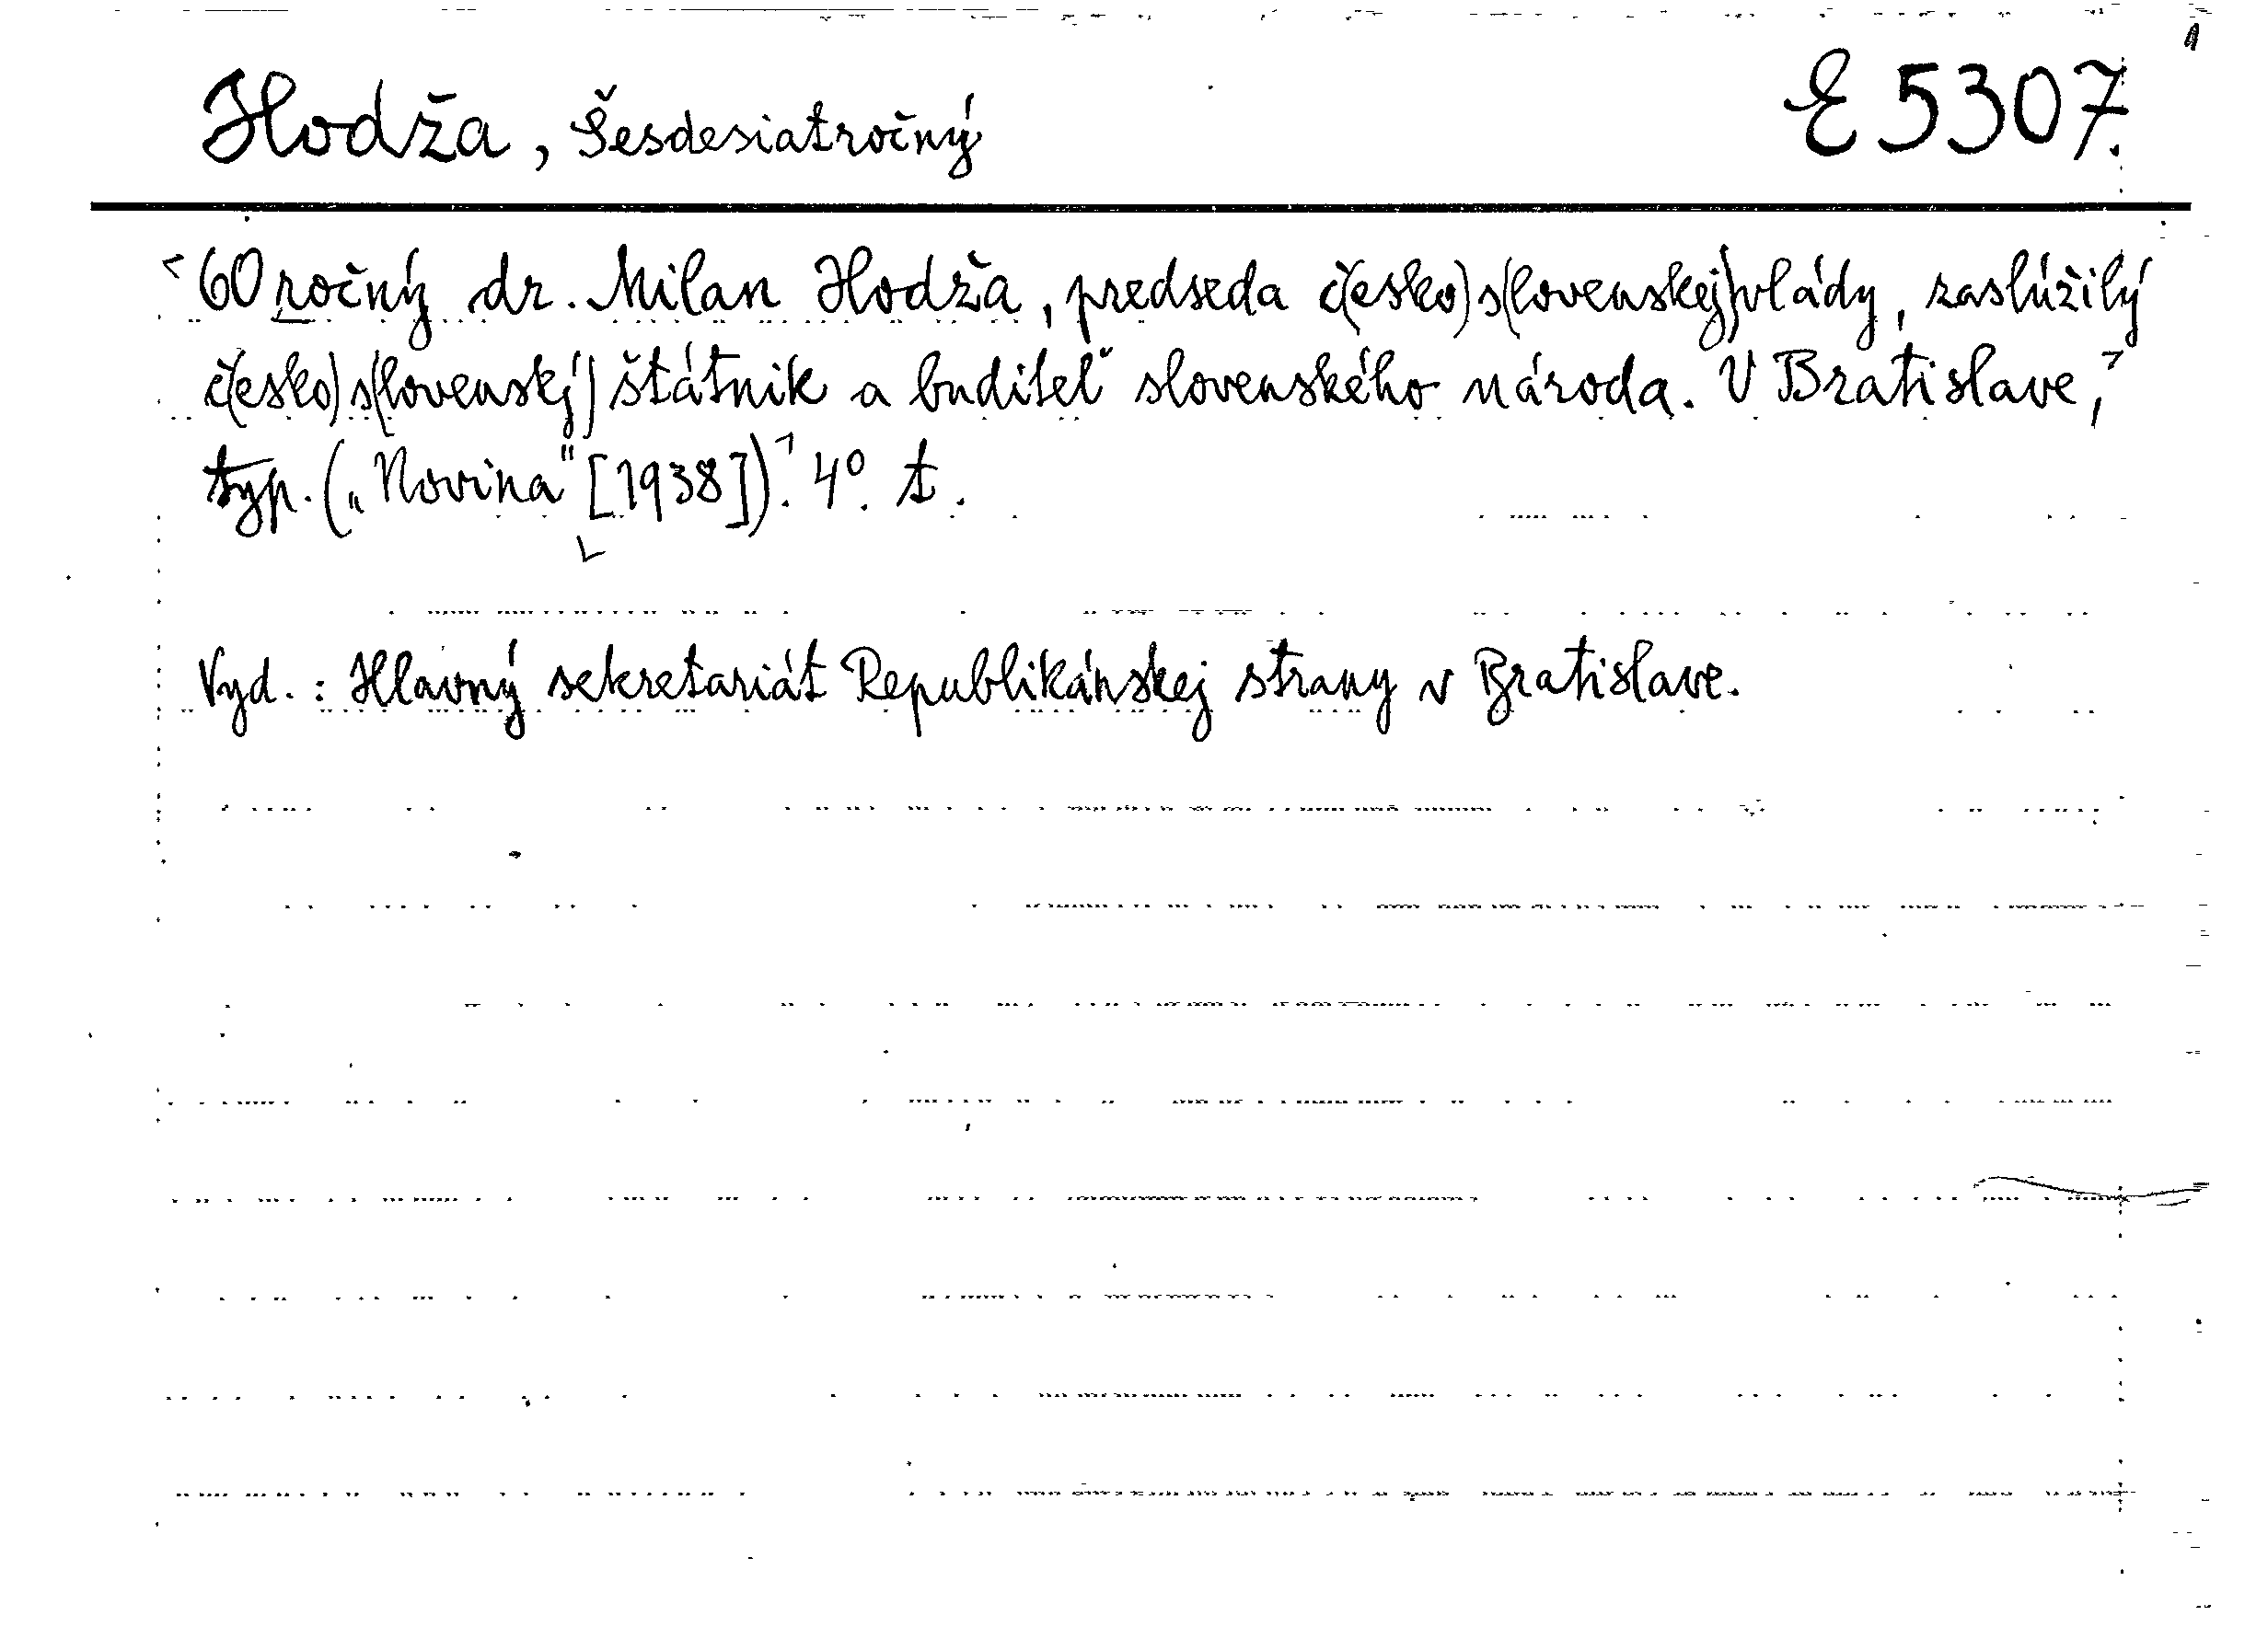 Hodža, Šesdesiatročný E 5307.
60 ročný dr. Milan Hodža, predseda č(esko)s(lovenskej) vlády, zaslúžilý
č(esko)s(lovenský) štátnik a buditeľ slovenského národa. V Bratislave,
typ. („Novina" [1938]). 4°. t.
Vyd.: Hlavný sekretariát Republikánskej strany v Bratislave.